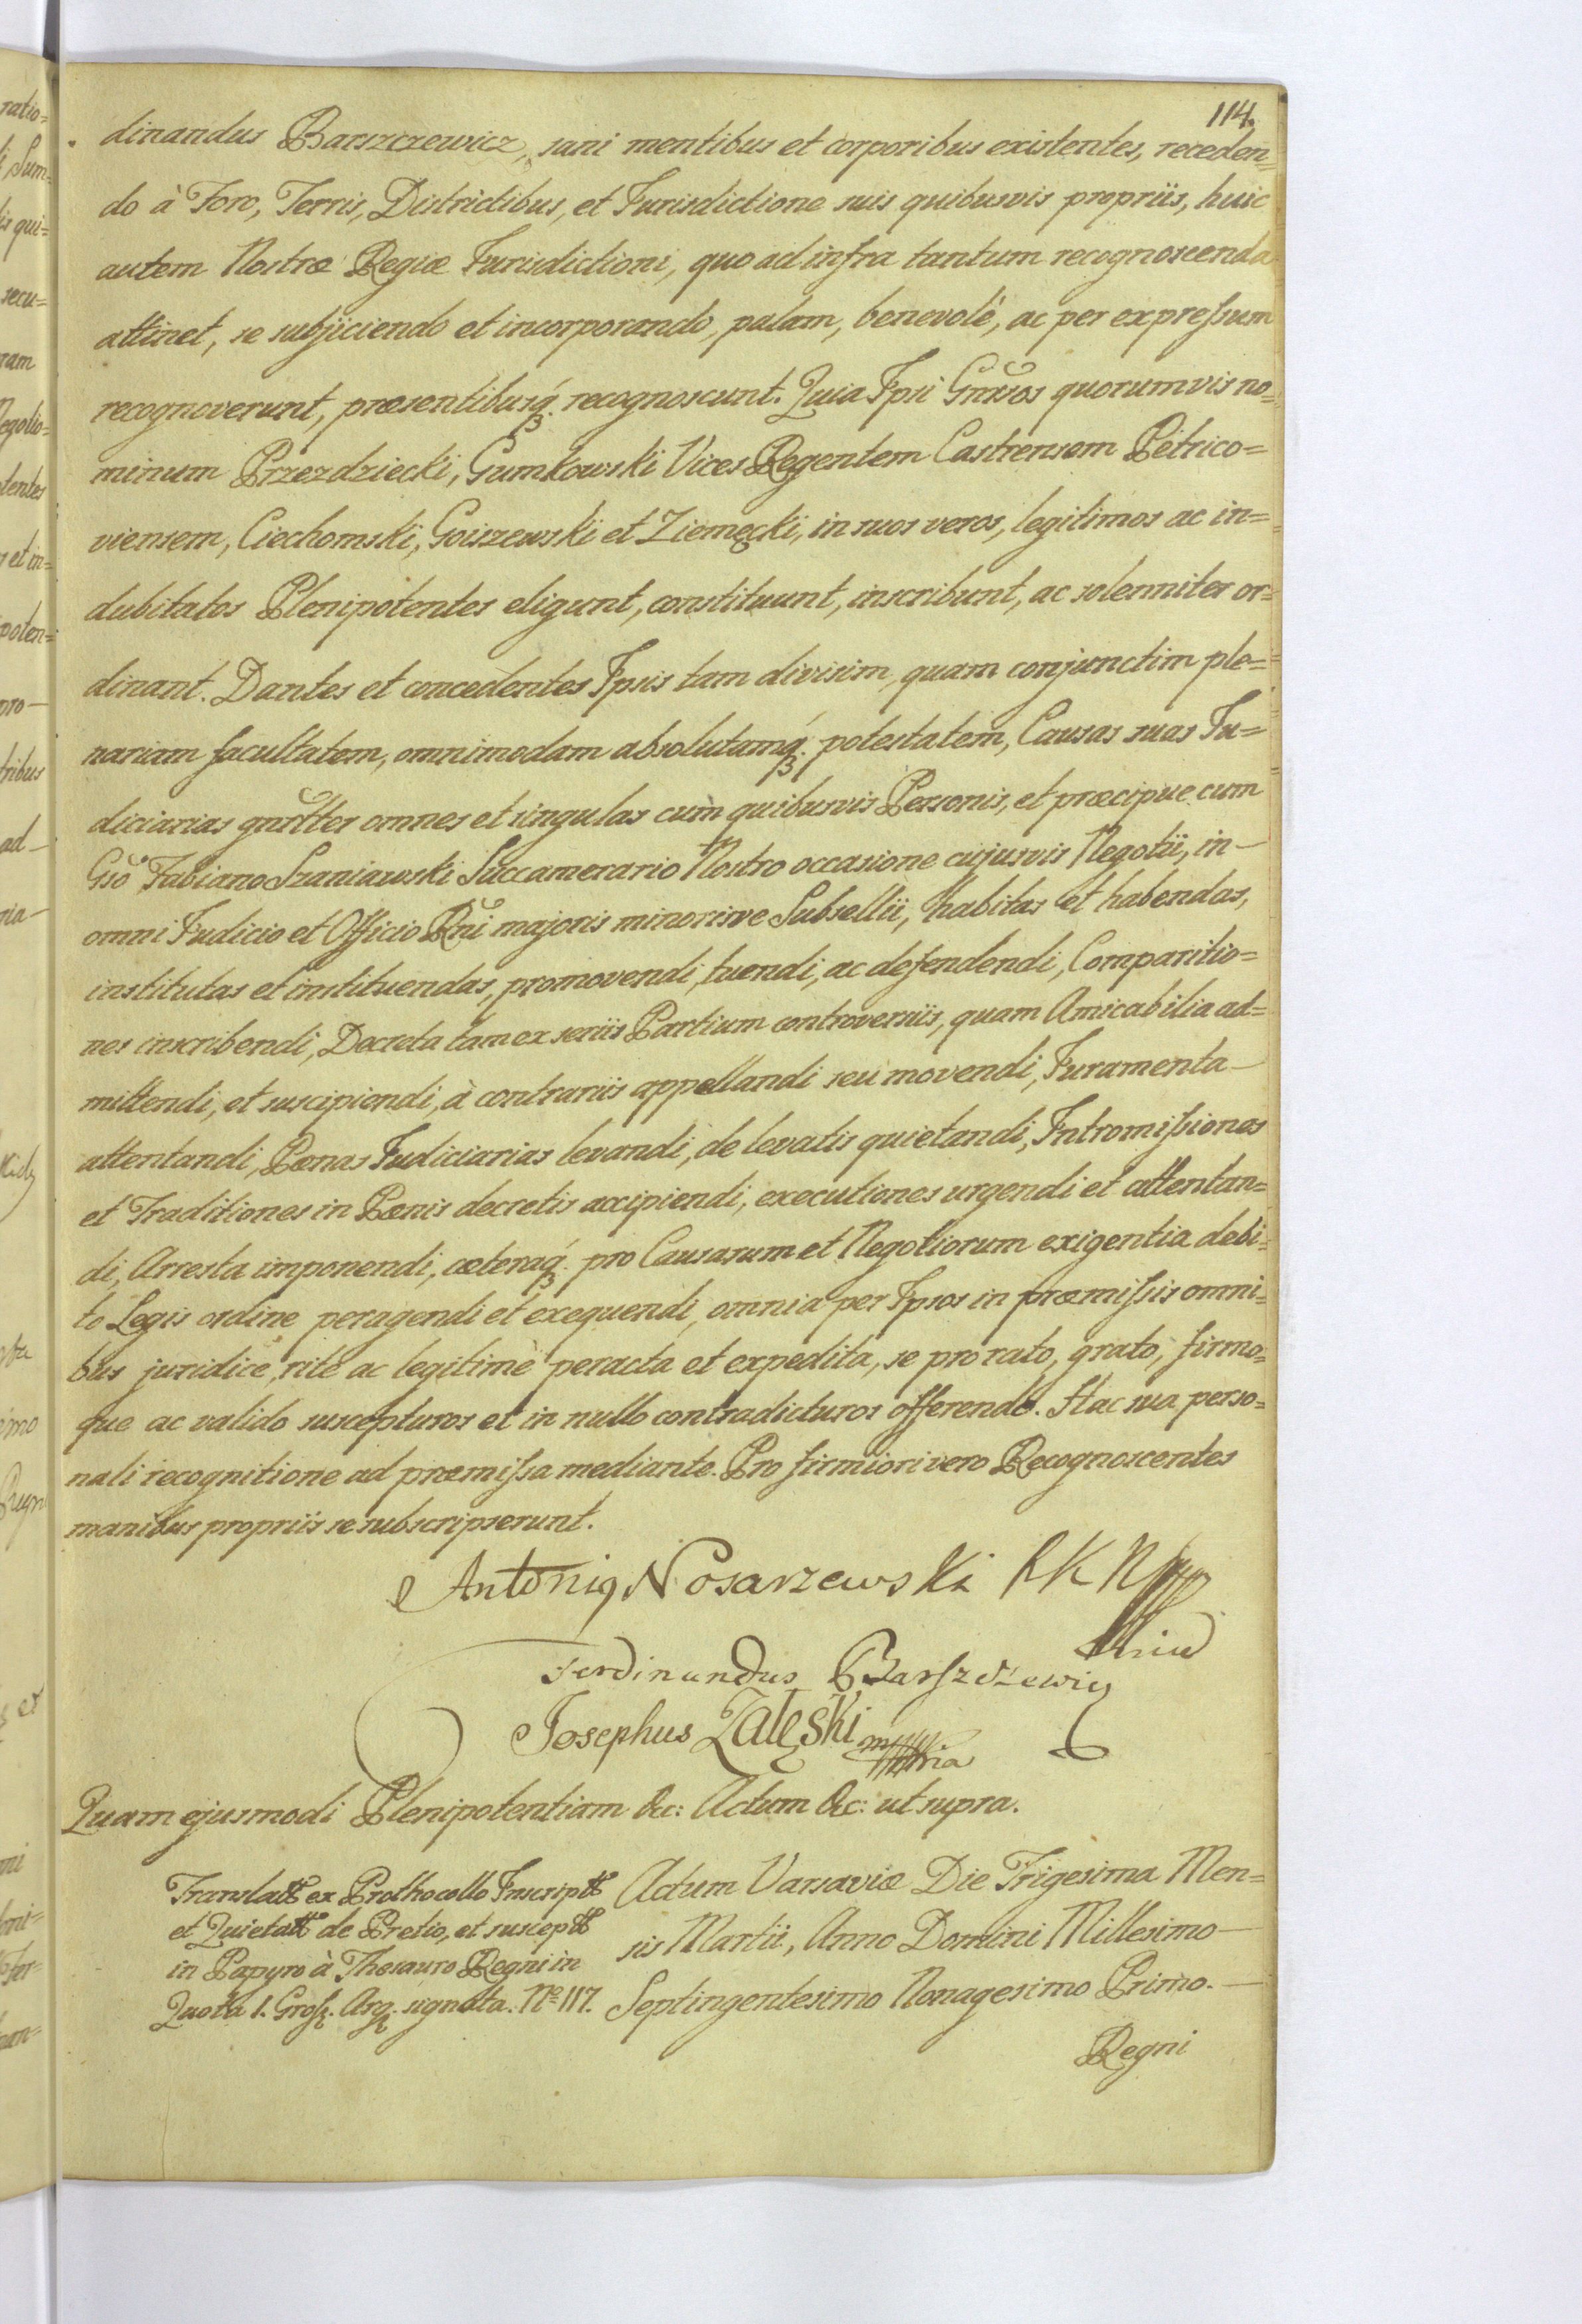 114.
dinandus Barszczewicz, sani mentibus et corporibus existentes, receden=
do à Foro, Terris, Districtibus, et Jurisdictione suis quibusvis propriis, huic
autem Nostræ Regiæ Jurisdictioni, quo ad infra tantum recognoscenda
attinet, se subjiciendo et incorporando, palam, benevolè, ac per expressum
recognoverunt, præsentibusq́. recognoscunt. Quia Ipsi Gnrsos quorumvis no=
minum Przezdziecki, Gumkowski Vices Regentem Castrensem Petrico=
viensem, Ciechomski, Goiszewski et Ziemęcki, in suos veros, legitimos ac in=
dubitatos Plenipotentes eligunt, constituunt, inscribunt, ac solenniter or=
dinant. Dantes et concedentes Ipsis tam divisim, quam conjunctim ple=
nariam facultatem, omnimodam absolutamq́. potestatem, Causas suas Ju=
diciarias gnrlter omnes et singulas cum quibusvis Personis, et præcipue cum
Gso Fabiano Szaniawski Succamerario Nostro occasione cujusvis Negotii, in-
omni Judicio et Officio Rni majoris minorisve Subsellii, habitas et habendas,
institutas et instituendas, promovendi, tuendi, ac defendendi, Comparitio=
nes inscribendi, Decreta tam ex seriis Partium controversiis, quam Amicabilia ad=
mittendi, et suscipiendi, à contrariis appellandi seu movendi, Juramenta-
attentandi, Pœnas Judiciarias levandi, de levatis quietandi, Intromissiones
et Traditiones in Pœnis decretis accipiendi, executiones urgendi et attentan=
di, Arresta imponendi, cæteraq́. pro Causarum et Negotiorum exigentia debi=
to Legis ordine peragendi et exequendi, omnia per Ipsos in præmissis omni=
bus juridice, ritè ac legitimè peracta et expedita, se pro rato, grato, firmo=
que ac valido suscepturos et in nullo contradicturos offerendo. Hac sua perso=
nali recognitione ad præmissa mediante. Pro firmiori vero Recognoscentes
manibus propriis se subscripserunt.
Antonig Nosarzewski RKN
Ferdinandus Barszczewicz
Josephus Zalęski mppria
Quam ejusmodi Plenipotentiam &c: Actum &c: ut supra.
Translatt ex Prothocollo Inscriptt
et Quietatt de Pretio, et susceptt
in Papyro à Thesauro Regni in
Quota 1. Gross. Arg. signata. No 117.
Actum Varsaviæ Die Trigesima Men=
sis Martii, Anno Domini Millesimo-
Septingentesimo Nonagesimo Primo.-
Regni